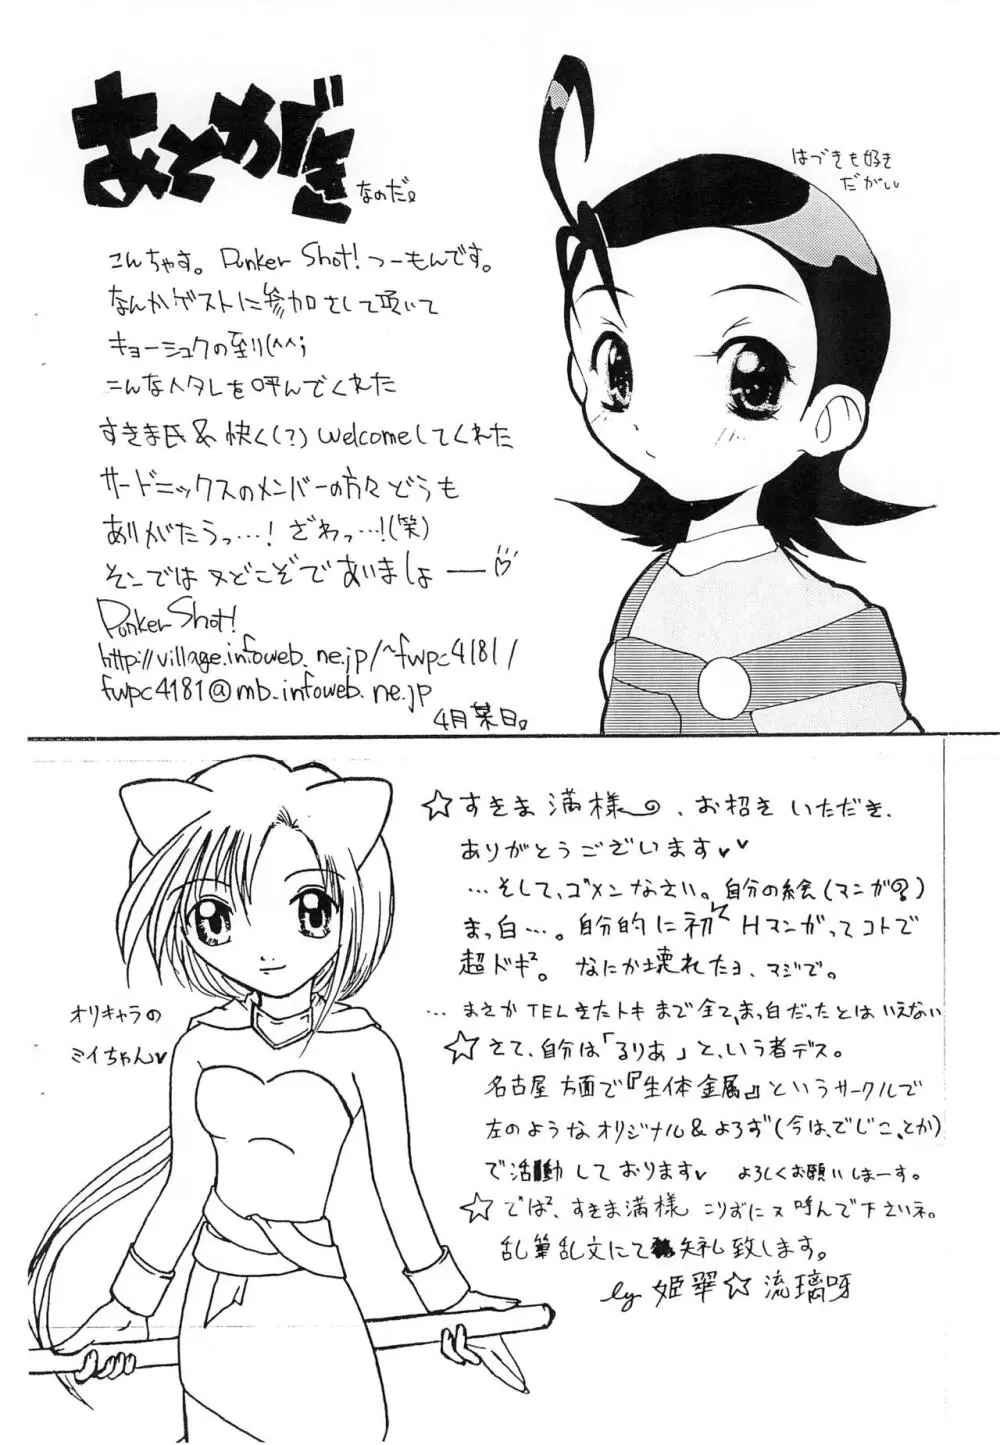 あとがき
なのだ。
はづきも好き
だがい
こんちゃす。Dunker Shot!つーもんです。
なんかゲストに参加さして頂いて
キョーシュクの到り(^^;
こんなヘタレを呼んでくれた
すきま氏&快く(?)welcomeしてくれた
サードニックスのメンバーの方々どうも
ありがたうっ…!ざわっ…!(笑)
そンではヌどこぞであいましょー♡
Dunker Shot!
http://village.infoweb.ne.jp/~fwpc4181/
fwpc4181@mb.infoweb.ne.jp
4月某日。
オリキャラの
ミイちゃん♥
☆すきま満様、お招きいただき、
ありがとうございます♥♥
…そして、ゴメンなさい。自分の絵(マンガ?)
まっ白…。自分的に初Hマンガってコトで
超ドキ²。なにか壊れたヨ、マジで。
…まさかTELきたトキまで全て、まっ白だったとはいえない
☆さて、自分は「るりあ」と、いう者デス。
名古屋方面で『生体金属』というサークルで
左のようなオリジナル&よろず(今は、でじこ、とか)
で活動しております♥よろしくお願いしまーす。
☆では²、すきま満様こりずにヌ呼んで下さいネ。
乱筆乱文にて失礼致します。
by 姫翠☆流璃呀